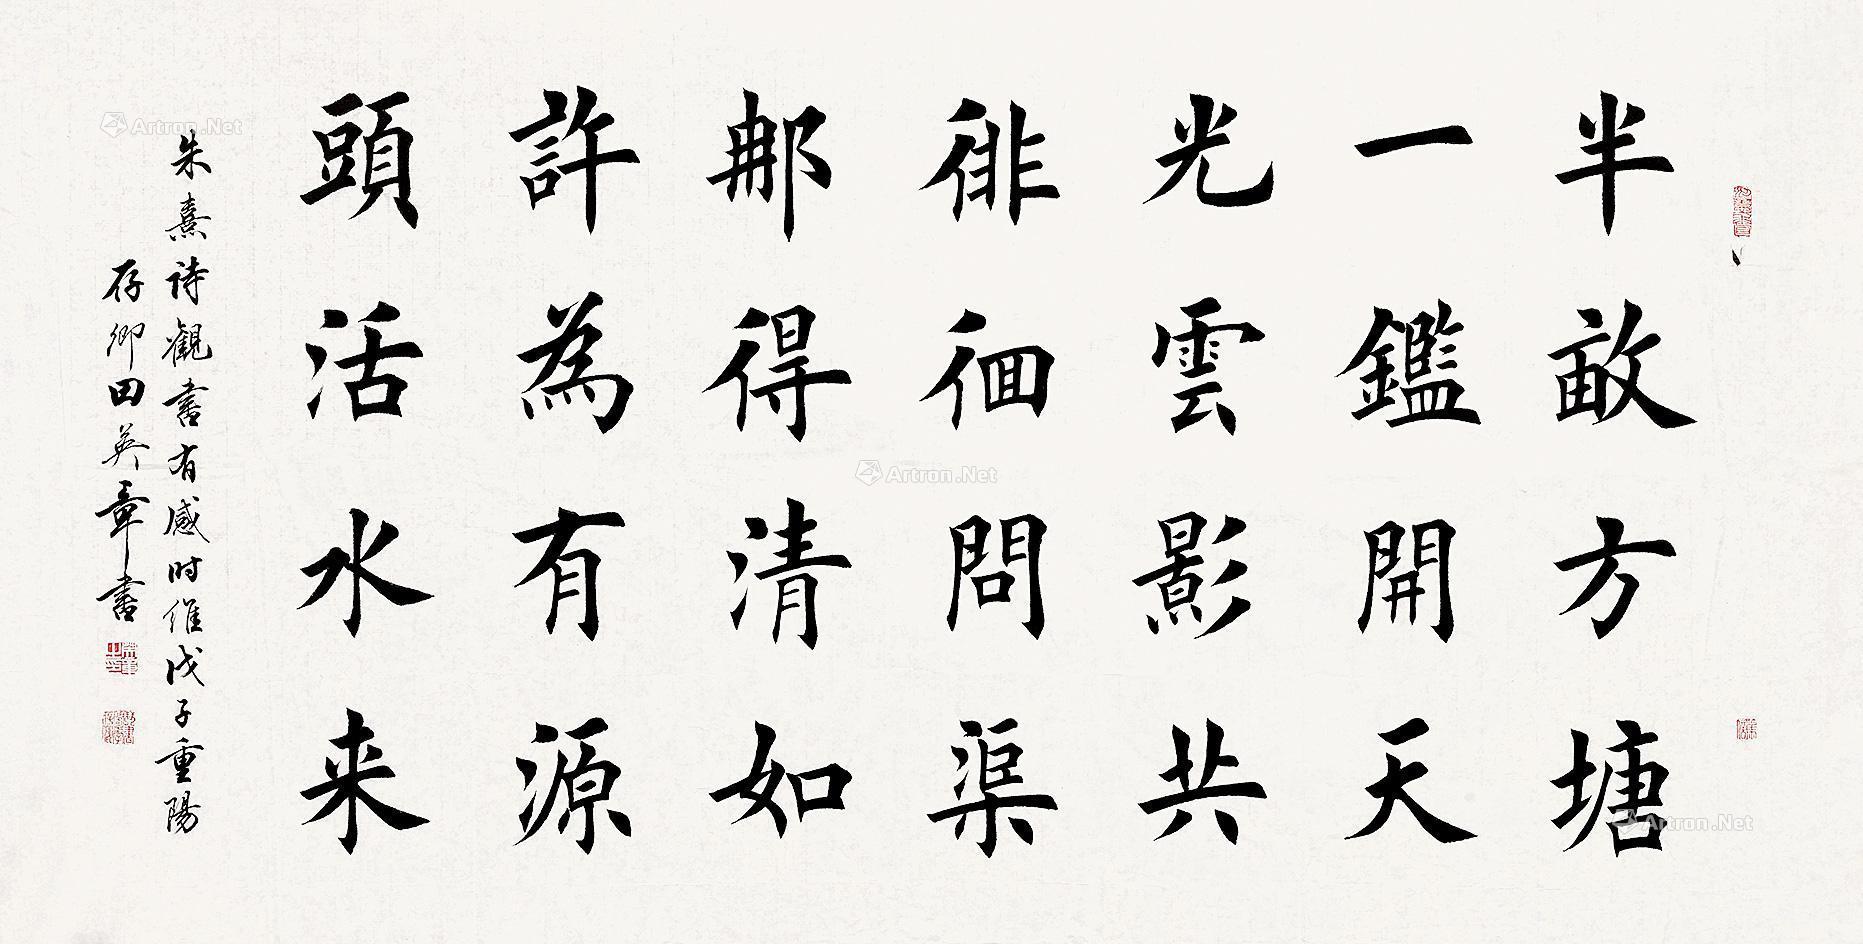 半畝方塘
一鑑開天
光雲影共
徘徊問渠
那得清如
許為有源
頭活水来
朱熹诗觀書有感时維戊子重陽
存卿田英章書
Artron.Net
Artron.Net
Artron.Net